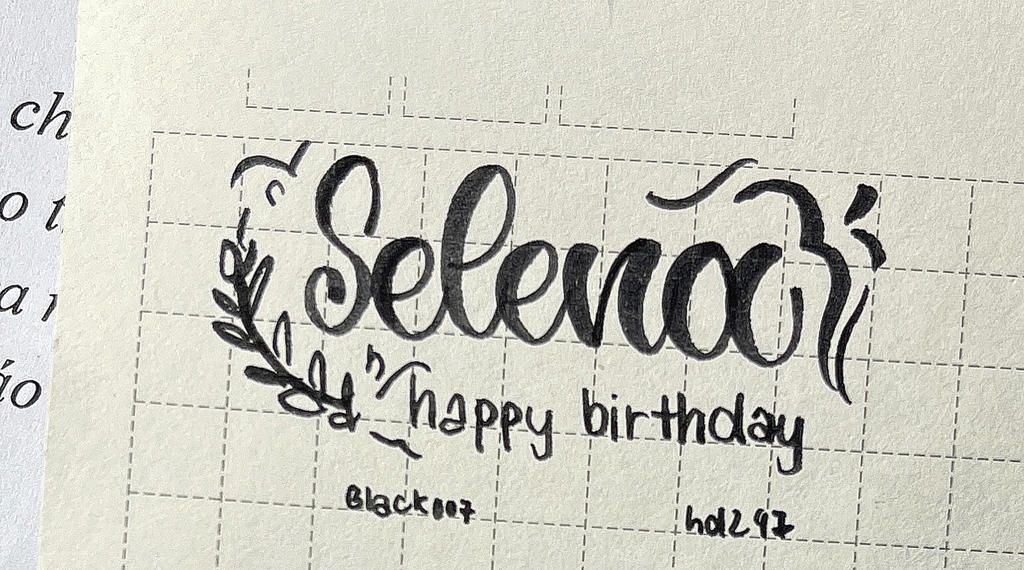 ch
Selena
happy birthday
Black007 hd297